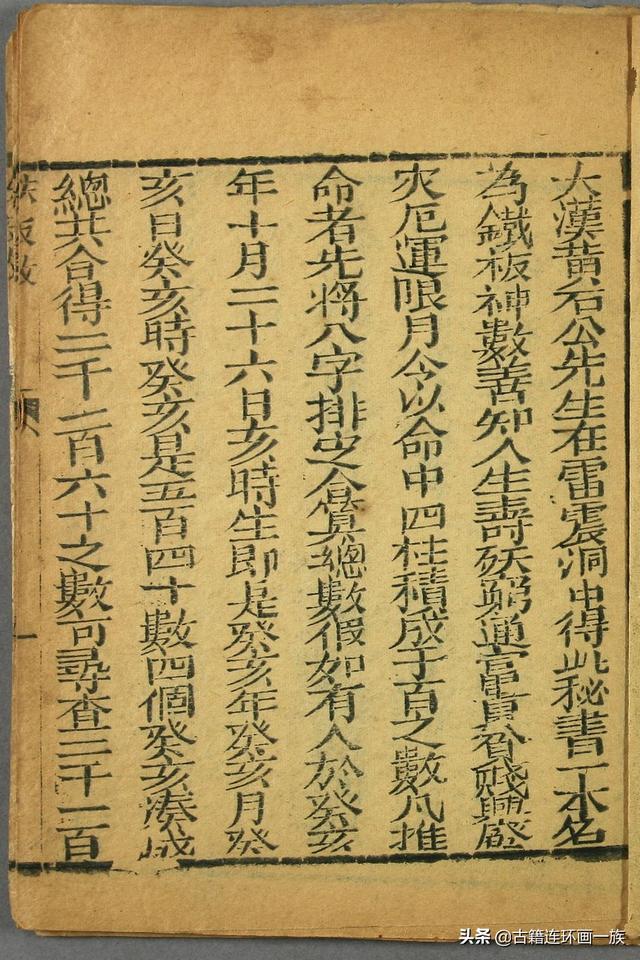 大漢黄石公先生在雷震洞中得此秘書一本名
為鐵板神數善知人生壽殀窮通富貴貧賤興廢
灾厄運限月令以命中四柱積成千百之數凡推
命者先將八字排定合算總數假如有人於癸亥
年十月二十六日亥時生即是癸亥年癸亥月癸
亥日癸亥時癸亥是五百四十數四個癸亥湊成
總共合得二千一百六十之數可尋查二千一百
鉄板数
一
头条 @古籍连环画一族